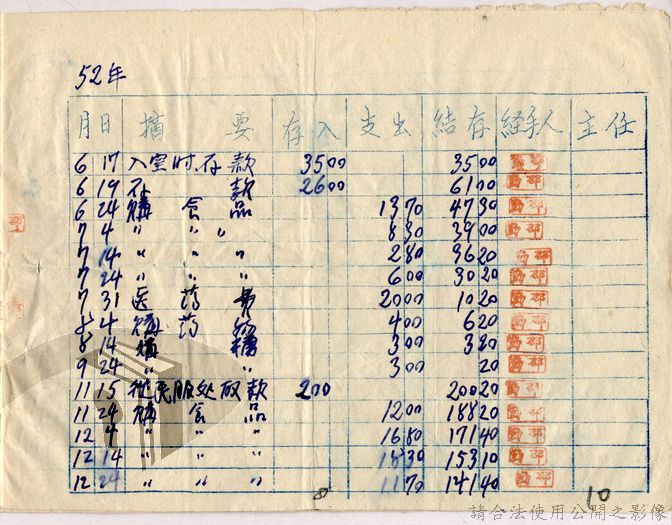 52年
月 日 摘要 存入 支出 結存 経手人 主任
6 17 入室时存款 3500 3500
6 19 存款 2600 6100
6 24 購食品 1370 4730
7 4 " " " 830 3900
7 14 " " " 280 3620
7 24 " " " 600 3020
7 31 医药費 2000 1020
8 4 購药 400 620
8 14 購 300 320
9 24 " " 300 20
11 15 從民服处取款 200 20020
11 24 購食品 1200 18820
12 4 " " " 1680 17140
12 14 " " " 1830 15310
12 24 " " " 1170 14140
8 10
請合法使用公開之影像